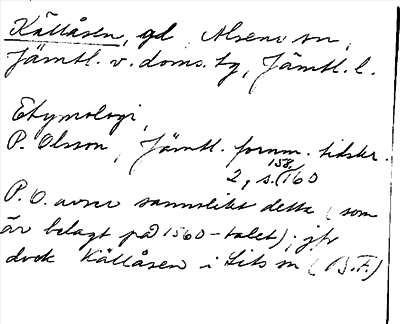 Källåsen, gd, Alsens sn,
Jämtl. v. doms. tg, Jämtl. l.
Etymologi,
P. Olsson, Jämtl. fornm. tidskr.
158,
2, s. 160
P. O. avser sannolikt detta (som
är belagt på 1560-talet); jfr
dock Källåsen i Lits sn (B.F.)